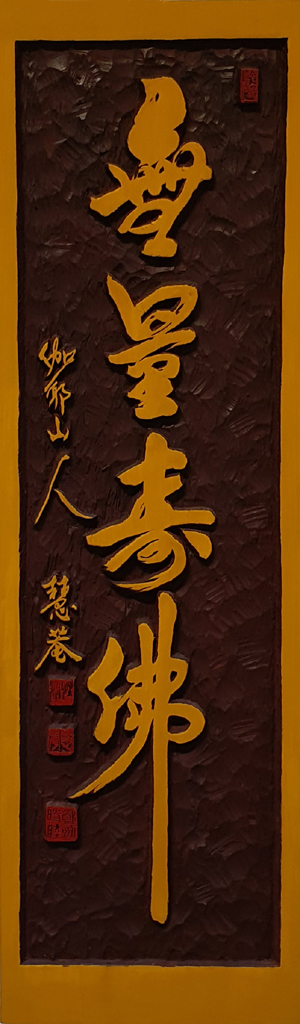 無量寿佛
伽耶山人
慧菴